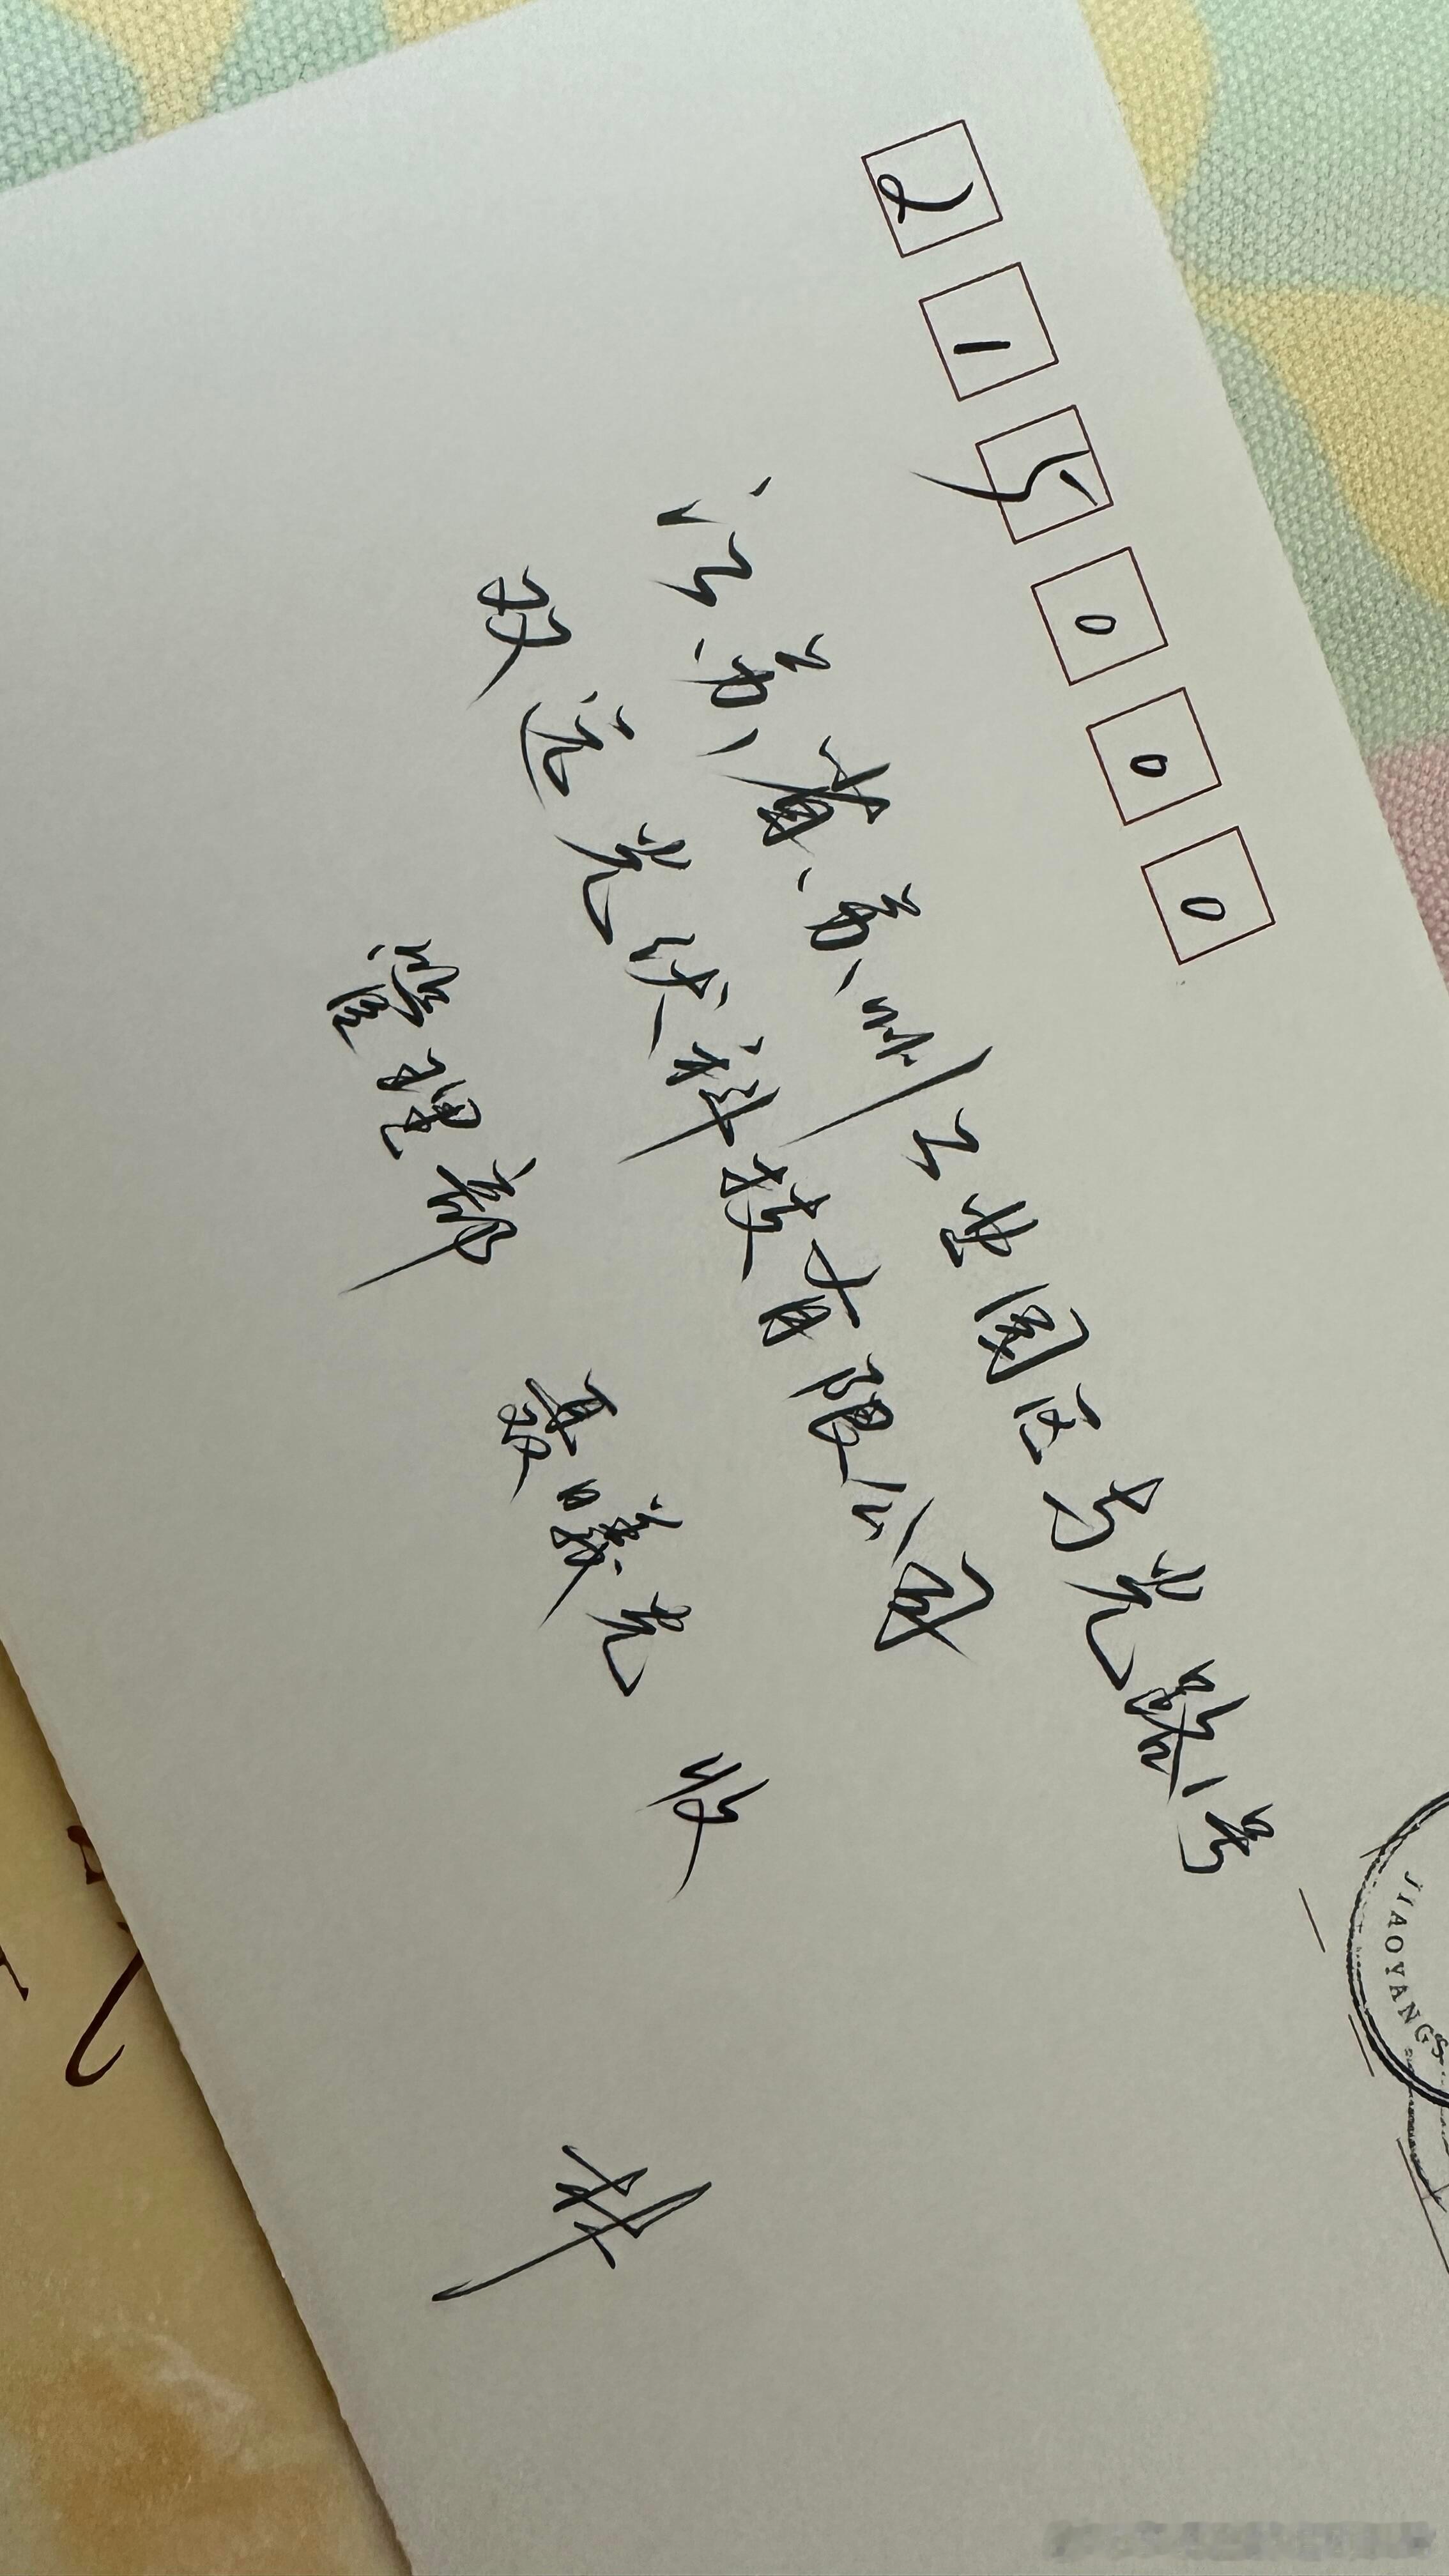 215000
江苏省苏州工业园区与光路1号
双远光伏科技有限公司
管理部 聂曦光 收
林
JIAOYANG